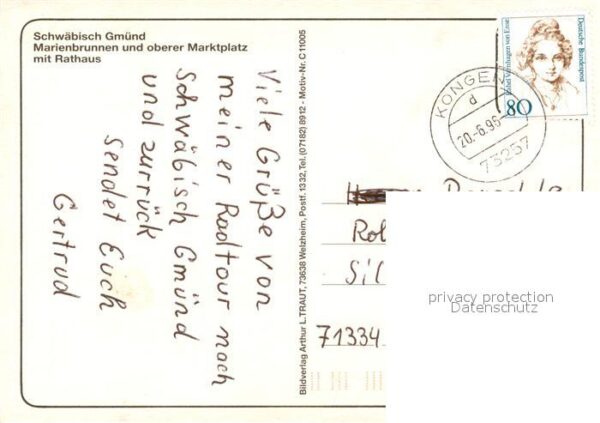 Schwäbisch Gmünd
Marienbrunnen und oberer Marktplatz
mit Rathaus
Viele Grüße von
meiner Radtour nach
Schwäbisch Gmünd
und zurrück
sendet Euch
Gertrud
Bildverlag Arthur L. TRAUT, 73638 Welzheim, Postf. 1332, Tel. (07182) 8912 - Motiv-Nr. C 11005
Deutsche Bundespost
Rahel Varnhagen von Ense
80
KÖNGEN
d
20.-6.96
73257
Rol
Sil
71334
privacy protection
Datenschutz